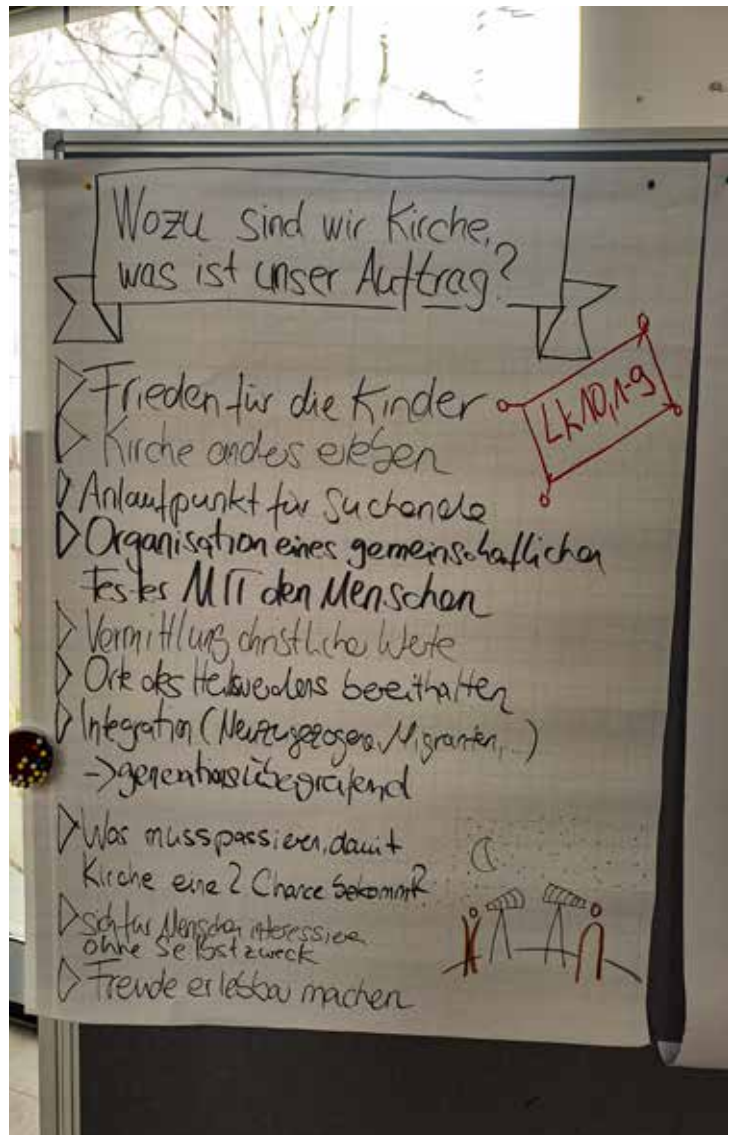 Wozu sind wir Kirche,
was ist unser Auftrag?
Frieden für die Kinder
Lk 10,1-9
Kirche anders erleben
Anlaufpunkt für Suchende
Organisation eines gemeinschaftlichen
Festes MIT den Menschen
Vermittlung christlicher Werte
Orte des Heilwerdens bereithalten
Integration (Neuzugezogene, Migranten,...)
-> generationsübergreifend
Was muss passieren, damit
Kirche eine 2 Chance bekommt?
sich für Menschen interessieren
ohne Selbstzweck
Freude erlebbar machen